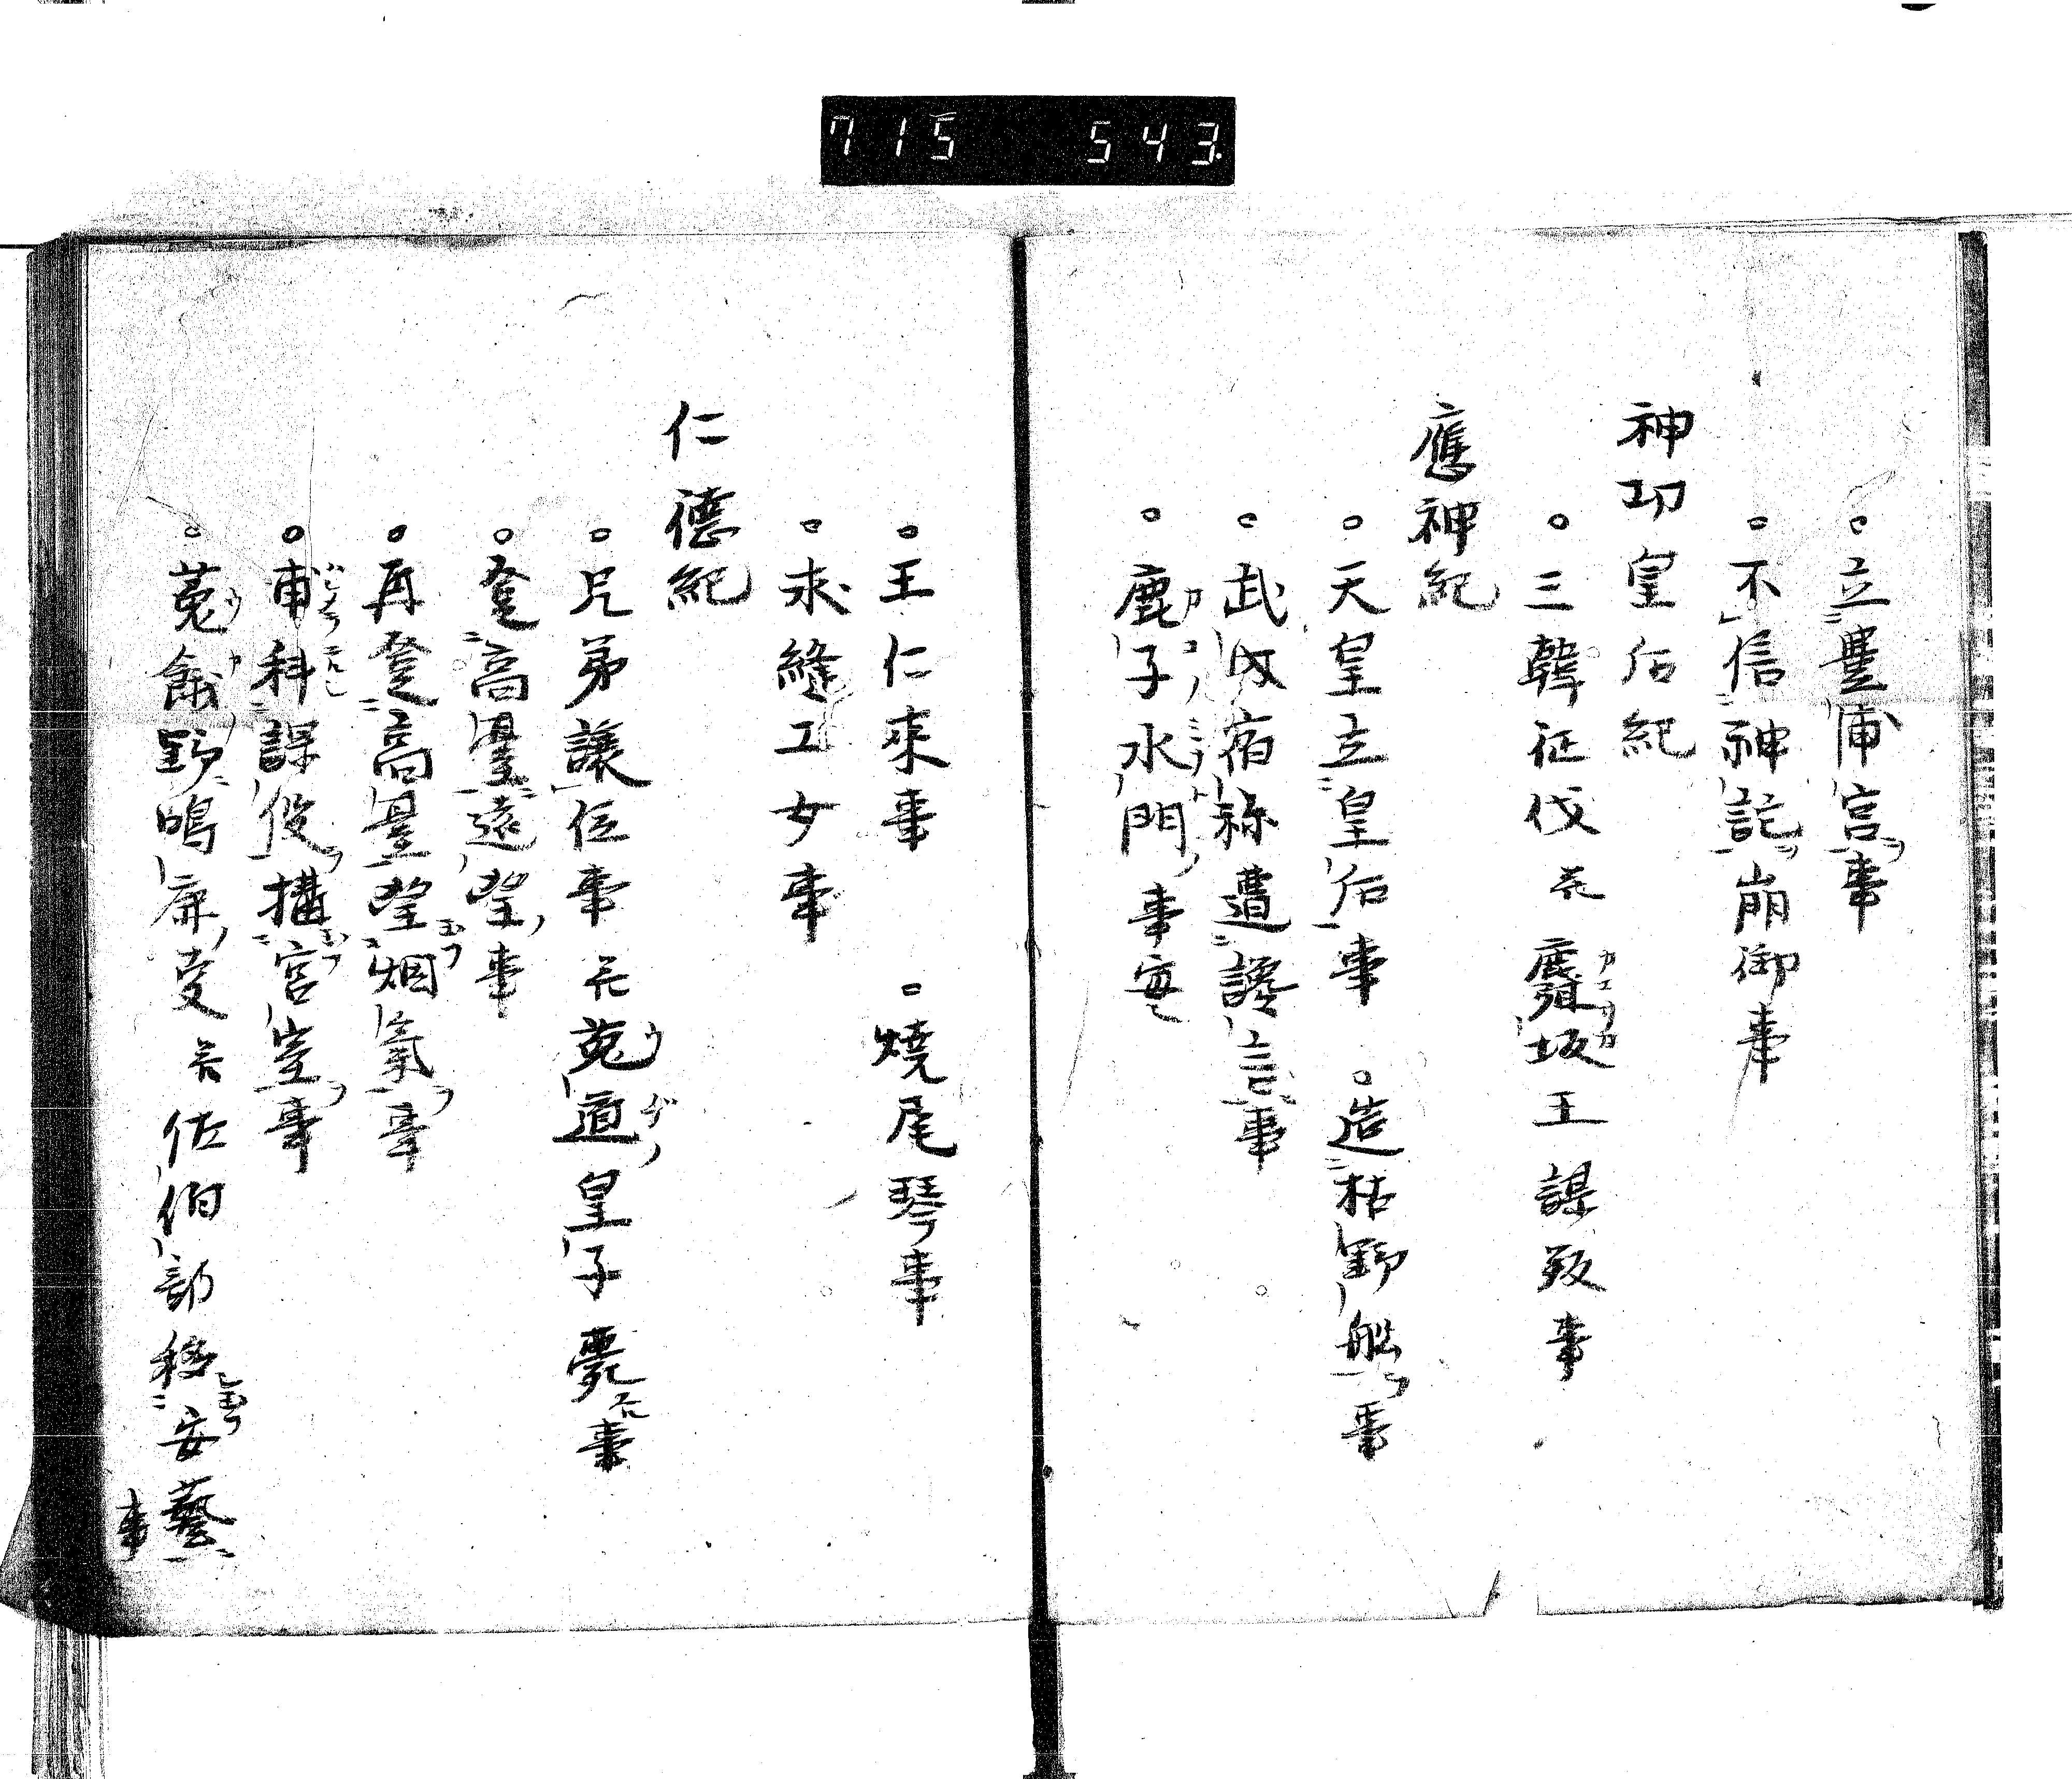 715 543.
○立豊浦宮事
○不信神託崩御事
神功皇后紀
○三韓征伐 并 麛坂王謀叛事
應神紀
○天皇立皇后事 ○造枯野舩事
○武内宿祢遭讒言事
○鹿子水門事
○王仁来事 ○焼尾琴事
○求縫工女事
仁徳紀
○兄弟譲位事 并 菟道皇子薨事
○登高臺遠望事
○再登高臺望烟氣事
○甫科課役構宮室事
○菟餓野鳴麻 佐伯部移安藝事